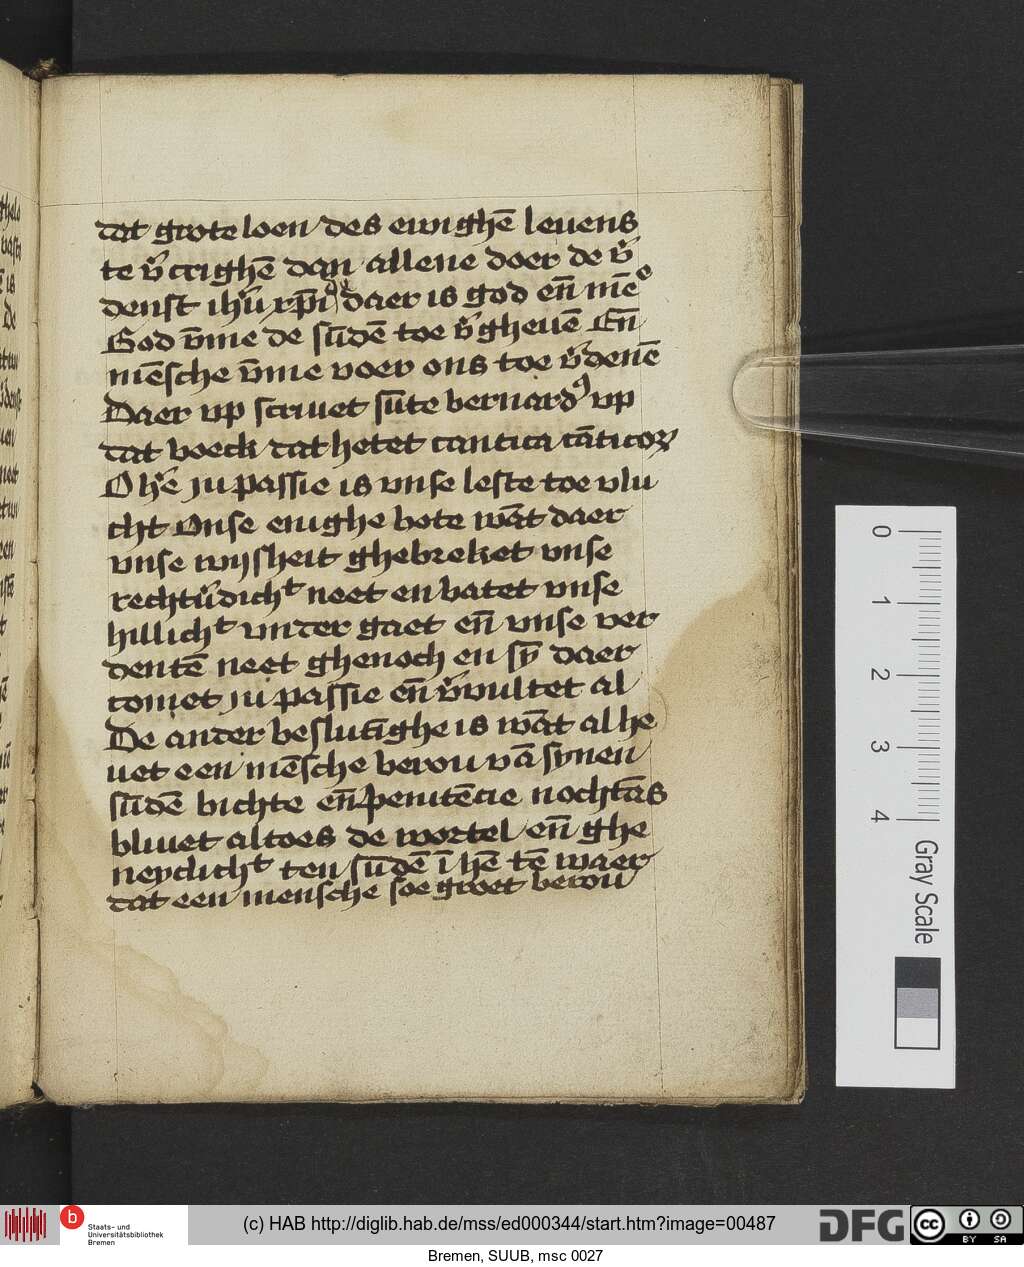 dat grote loen des ewighē leuens
te v̄crighē dan allene doer de v̄
denst ihū xp̄i daer is god en̄ mēs
God v̄me de sūdē toe v̄gheuē En̄
mēsche v̄me voer ons toe v̄denē
Daer vp scriuet sūte bernardꝰ vp
dat boeck dat hetet cantica cāticoꝝ
O he͛e ju passie is vnse leste toe vlu
cht Onse enighe bote wāt daer
vnse wijsheit ghebreket vnse
rechtu͛dichᵗ neet en batet vnse
hillichᵗ vnter gaet en̄ vnse ver
dentē neet ghenoch en sȳ daer
comet ju passie en̄ v̄vultet al
De anter beslutīghe is wāt al he
uet een mēsche berou vā synen
sūdē bichte en̄ penitēcie nochtās
bliuet altoes de wortel en̄ ghe
neyclichᵗ ten sūdē ī hē tē waer
dat een mensche soe groet berou
0
1
2
3
4
Gray Scale
Staats- und
Universitätsbibliothek
Bremen
(c) HAB http://diglib.hab.de/mss/ed000344/start.htm?image=00487
DFG
cc
BY SA
Bremen, SUUB, msc 0027